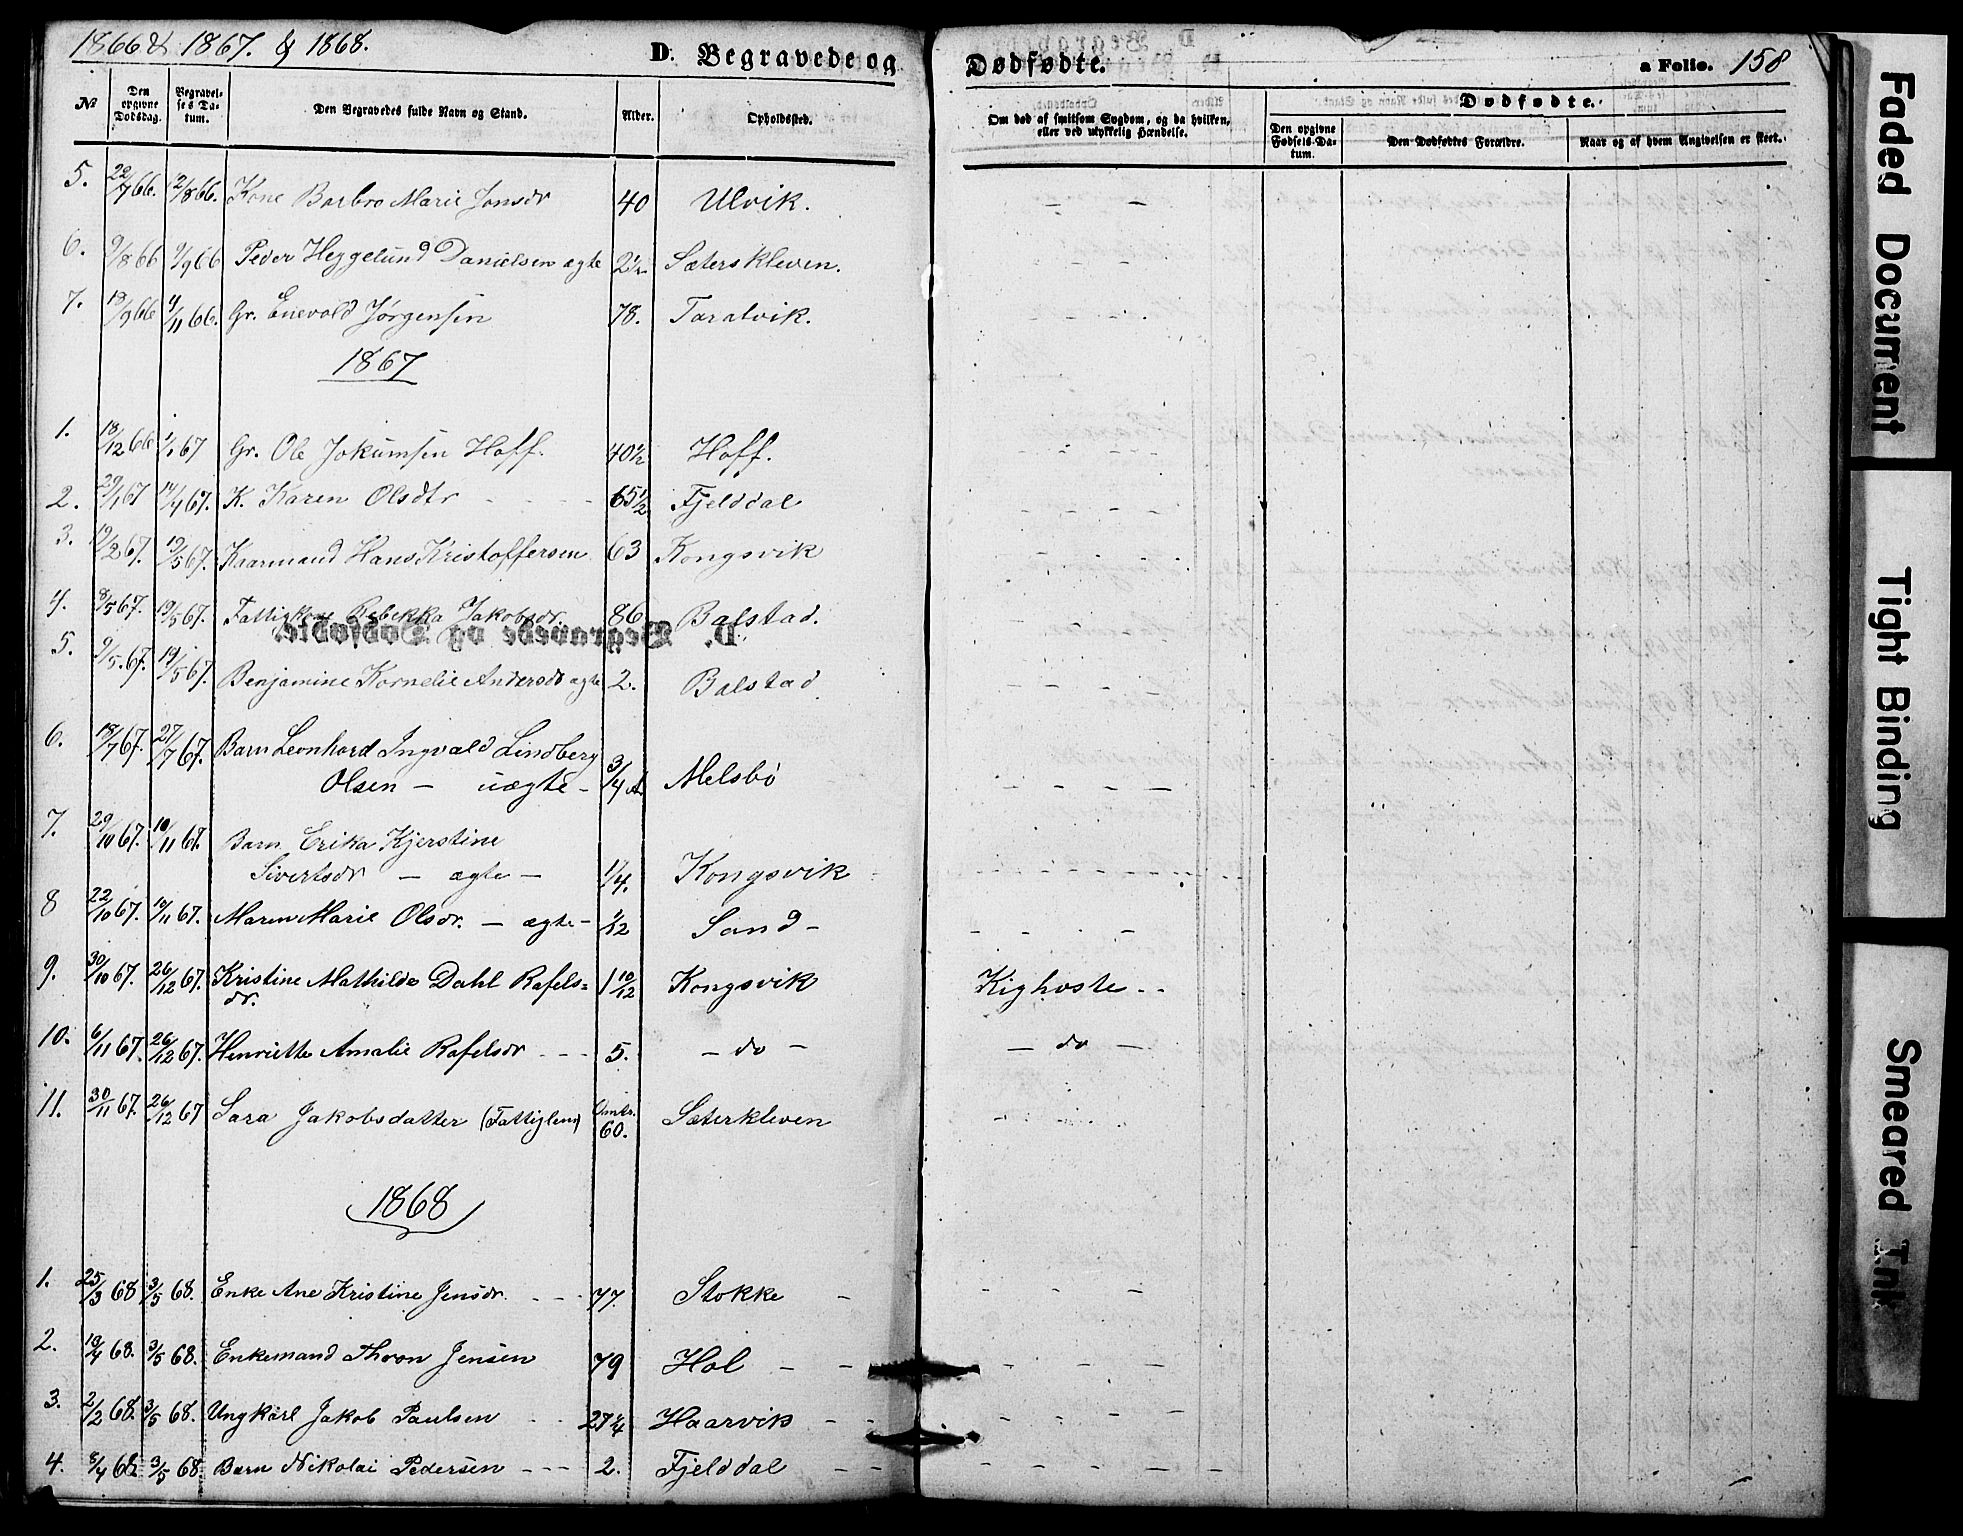 1866 & 1867. & 1868.
D. Begravede og Dødfødte. a Folio. 158
No
Den opgivne Dødsdag.
Begravelses Datum.
Den Begravedes fulde Navn og Stand.
Alder.
Opholdssted.
Om død af smitsom Sygdom, og da hvilken, eller ved ulykkelig Hændelse.
Dødfødte.
Den opgivne Fødsels-Datum.
Den Dødfødtes Forældre.
Naar og af hvem Angivelsen er skeet.
5. 22/7 66. 12/8 66. Kone Barbro Marie Jonsdr 40 Ulvik. — —
6. 9/8 66 9/9 66 Peder Heggelund Danielsen ægte 2½ Sæterskleven. — —
7. 19/9 66 4/11 66. Gr. Enevold Jørgensen 78. Taralvik.
1867
1. 18/12 66 1/1 67 Gr. Ole Jokumsen Hoff. 40½ Hoff.
2. 29/1 67 14/4 67. K. Karen Olsdtr - - - 65½ Fjelddal
3. 19/2 67. 19/5 67. Kaarmand Hans Kristoffersen 63 Kongsvik
4. 8/5 67. 19/5 67. Fattigkone Rebekka Jakobsdr. 86 Balstad.
D. Begravede og Dødfødte.
5. 9/5. 67. 19/5 67. Benjamine Kornelie Andersdr ægte 2. Balstad
6. 18/7 67. 27/7 67. Barn Leonhard Ingvald Lindberg
Olsen — uægte - 3/4 A. Melsbø — — — —
7. 29/10 67. 10/11 67. Barn Erika Kjerstine
Sivertsdr — ægte — 1/4. Kongsvik
8 22/10 67. 10/11 67. Maren Marie Olsdr. — ægte - 1/12 Sand -
9. 30/10 67. 26/12 67. Kristine Mathilde Dahl Rafels=
dr. 1 10/12 Kongsvik Kighoste - -
10. 6/11 67. 26/12 67. Henriette Amalie Rafelsdr - - - 5. — do — — do —
11. 30/11 67. 26/12 67 Sara Jakobsdatter (Fattiglem) Omtr. 60. Sæterkleven
1868
1. 25/3 68 3/5 68. Enke Ane Kristine Jensdr. - - - 77. Stokke -
2. 19/4 68. 3/5 68. Enkemand Thron Jensen 79 Hol — —
3. 2/2 68. 3/5 68. Ungkarl Jakob Paulsen 27 ¼ Haarvik — —
4. 8/4 68. 3/5 68 Barn Nikolai Pedersen - - - 2. Fjelddal — —
Faded Document
Tight Binding
Smeared Ink